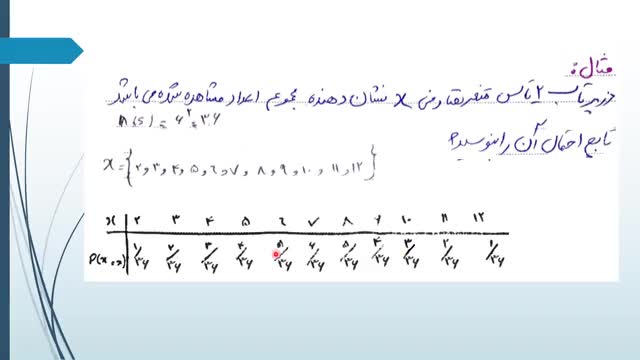 مثال:
در پرتاب ۲ تاس متغیر تصادفی x نشان دهنده مجموع اعداد مشاهده شده می باشد
n(s) = ۶^۲ = ۳۶
تابع احتمال آن را بنویسید؟
x = {۲, ۳, ۴, ۵, ۶, ۷, ۸, ۹, ۱۰, ۱۱, ۱۲}
x | ۲ ۳ ۴ ۵ ۶ ۷ ۸ ۹ ۱۰ ۱۱ ۱۲
P(x=x) | ۱/۳۶ ۲/۳۶ ۳/۳۶ ۴/۳۶ ۵/۳۶ ۶/۳۶ ۵/۳۶ ۴/۳۶ ۳/۳۶ ۲/۳۶ ۱/۳۶